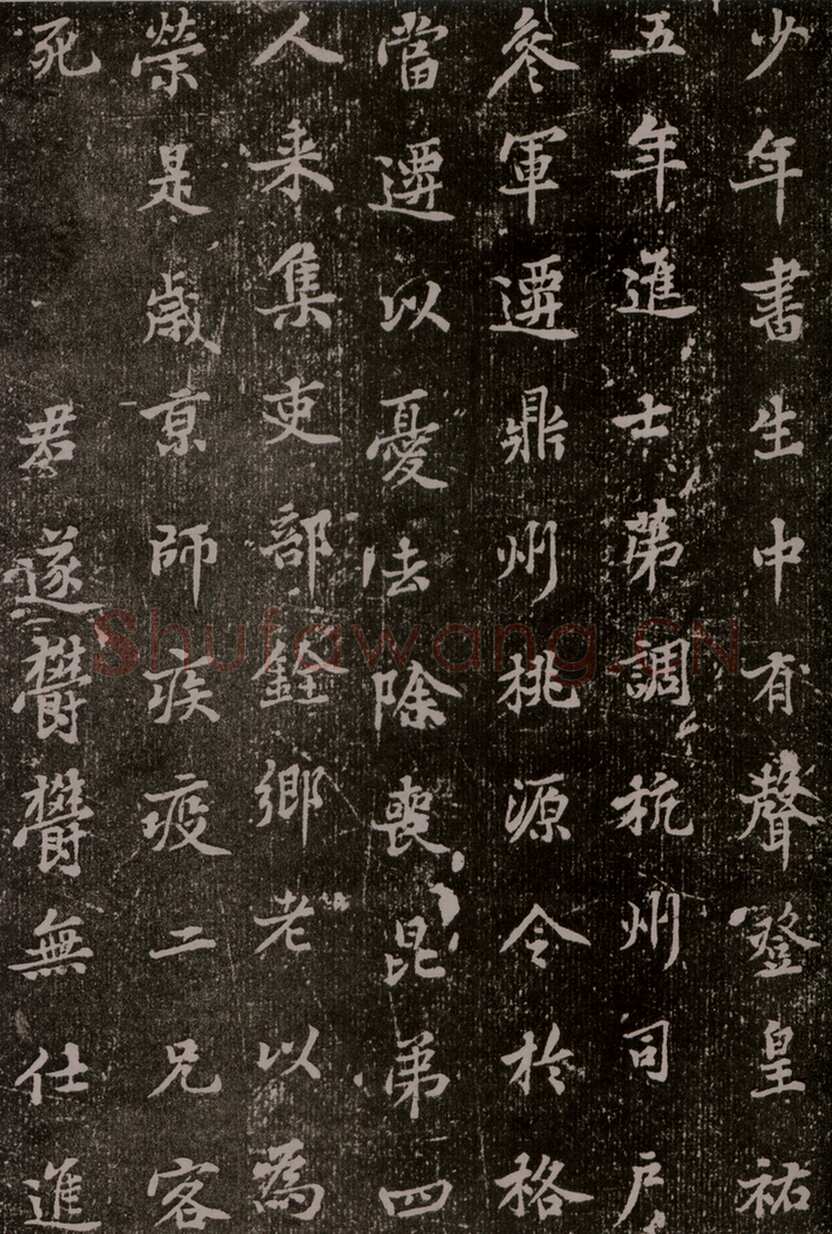 少年書生中有聲登皇祐
五年進士第調杭州司戶
參軍遷鼎州桃源令於格
當遷以憂去除喪昆弟四
人来集吏部銓鄉老以為
荣是歲京師疾疫二兄客
死 君遂欝欝無仕進
Shufawang.CN